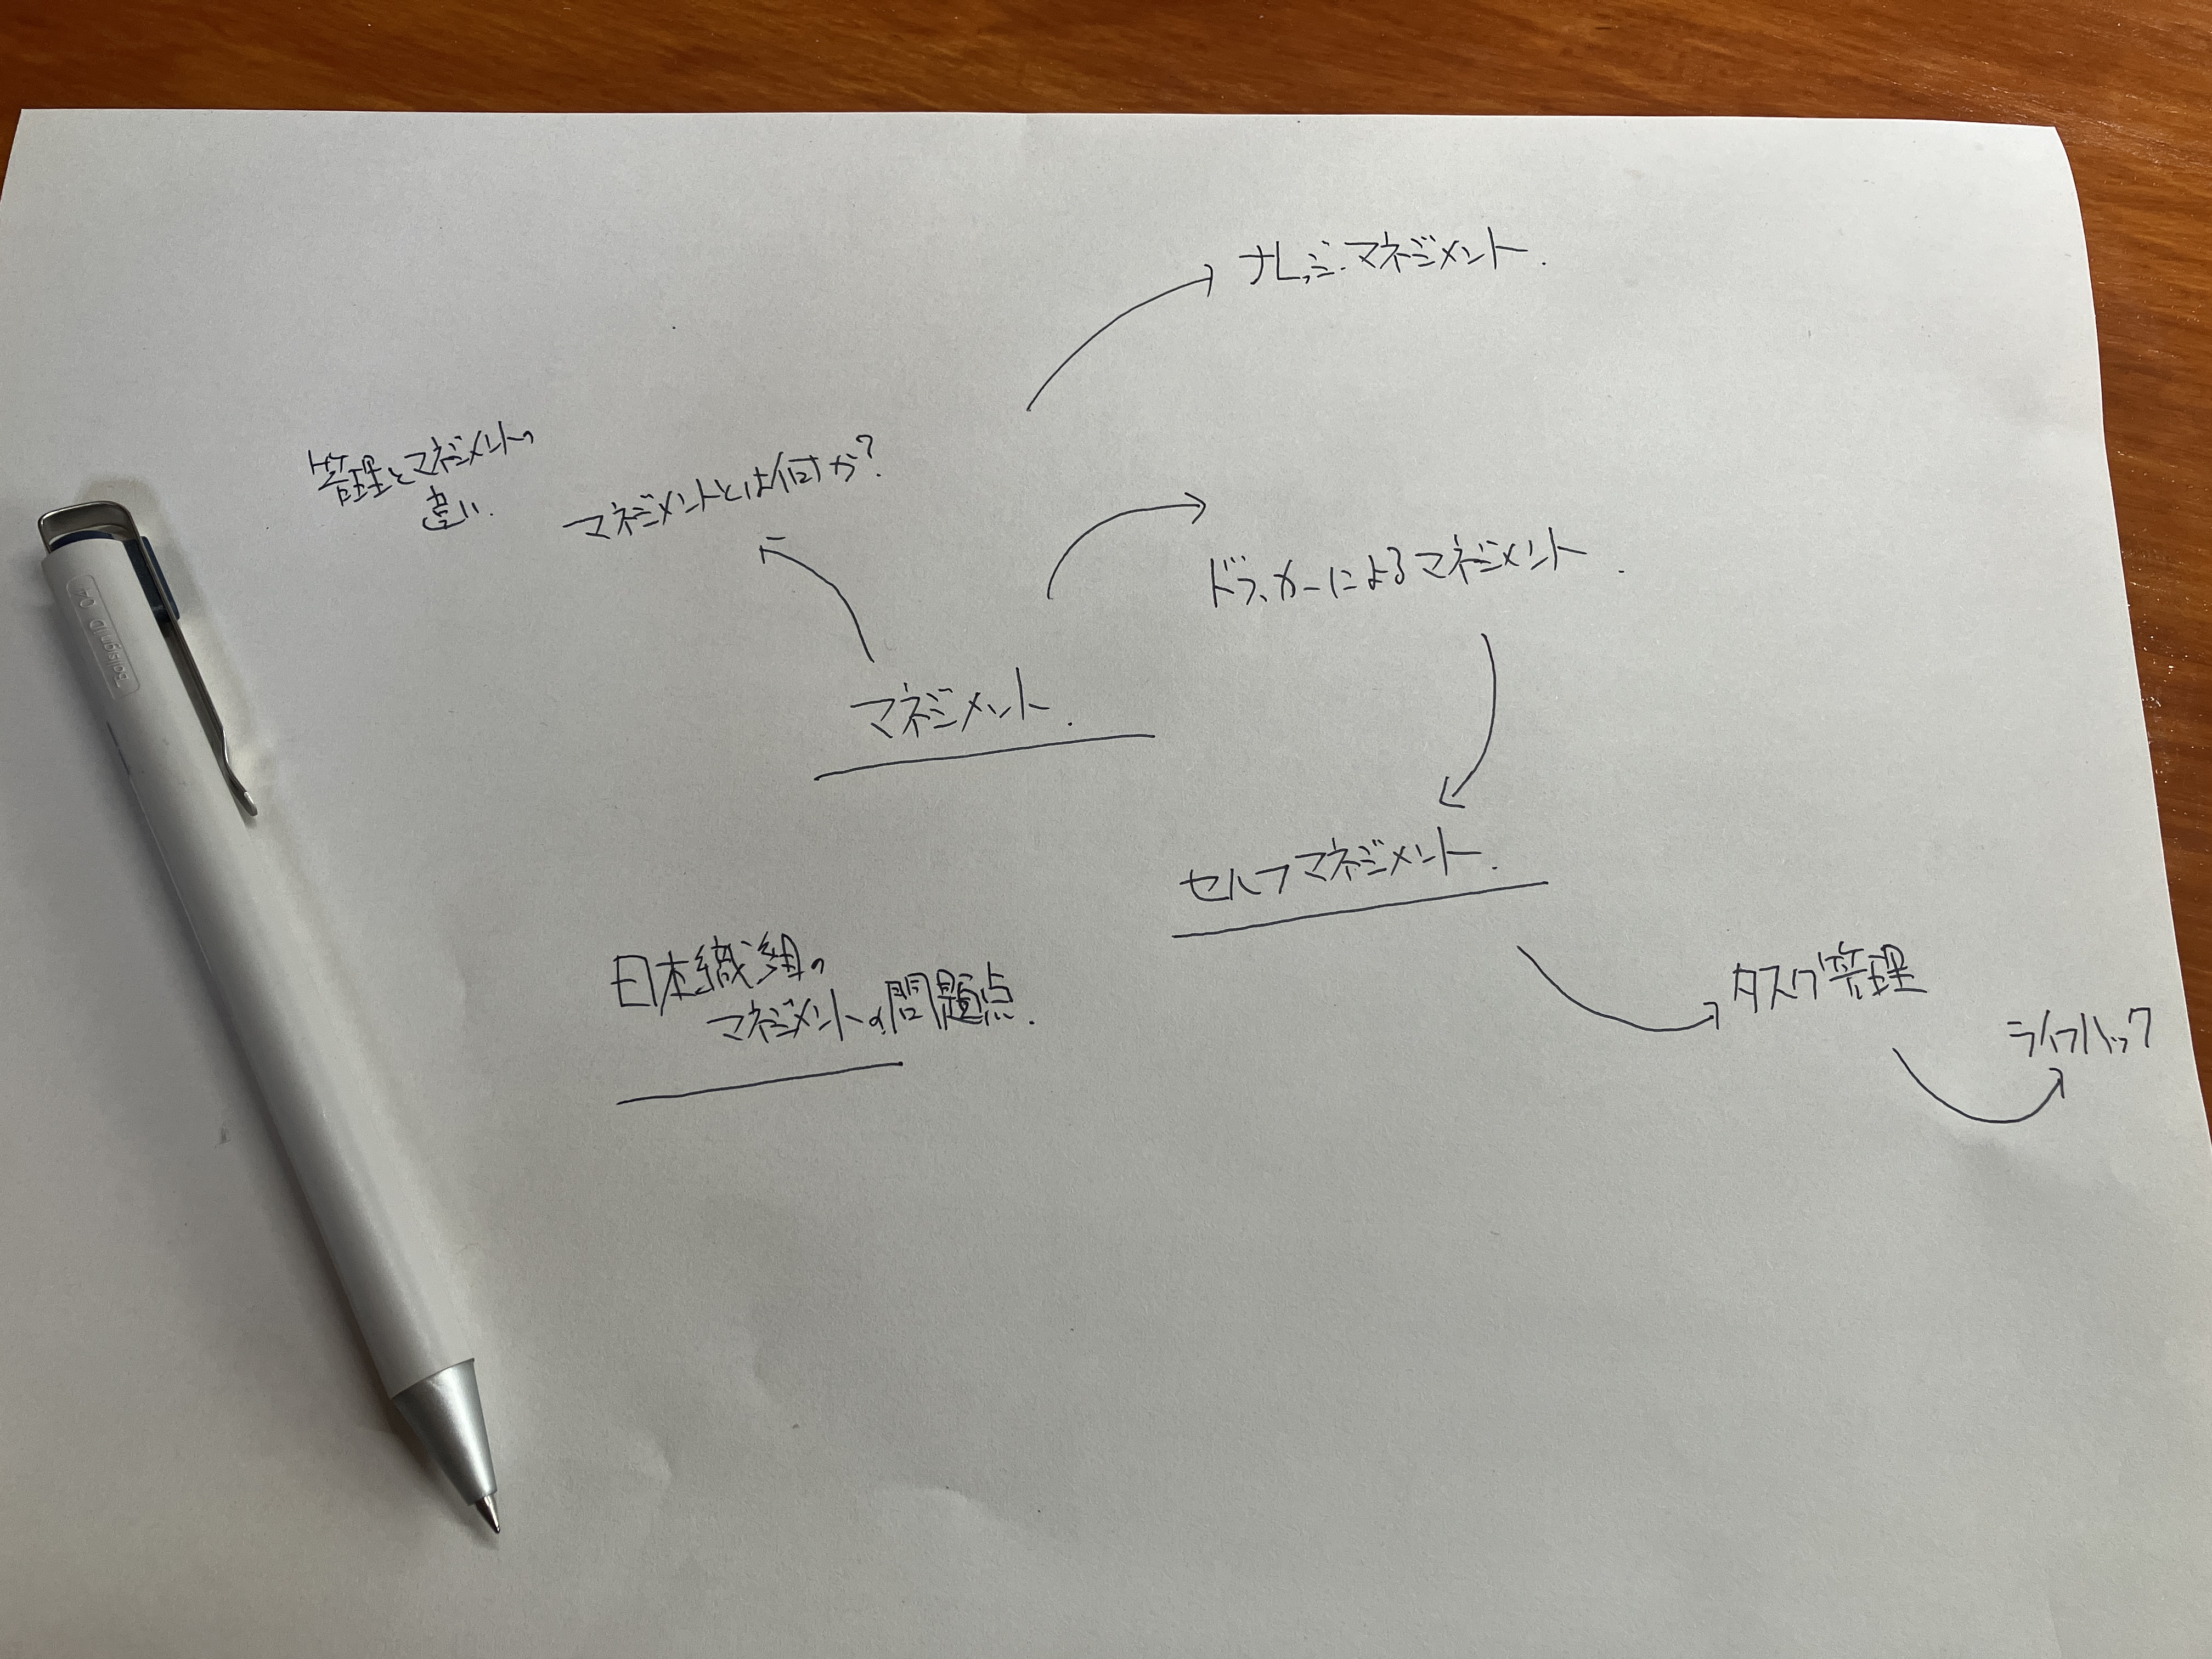 ナレッジ・マネジメント.
管理とマネジメントの
違い.
マネジメントとは何か?
ドラッカーによるマネジメント.
マネジメント.
セルフマネジメント.
日本織組の
マネジメントの問題点.
タスク管理
ライフハック
Ballsign iD 04